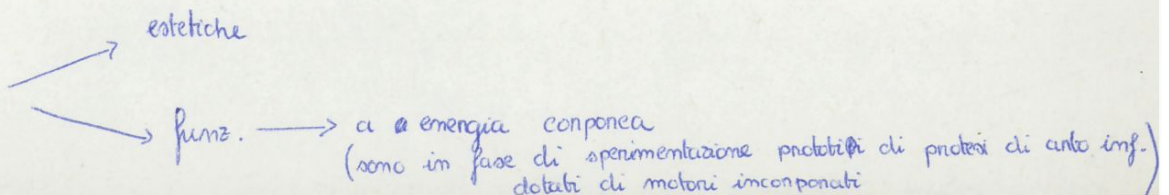 estetiche
funz. → a energia corporea
(sono in fase di sperimentazione prototipi di protesi di arto inf.
dotati di motori incorporati)